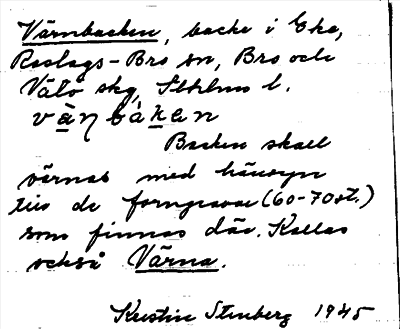 Värnbacken, backe i Eka,
Roslags-Bro sn, Bro och
Vätö skg, Sthlms l.
vàṇbàken
Backen skall
värnas med hänsyn
till de forngravar (60-70 st.)
som finnas där. Kallas
också Värna.
Kerstin Stenberg 1945